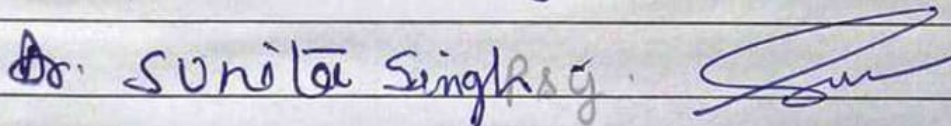 Dr. Sunita Singh